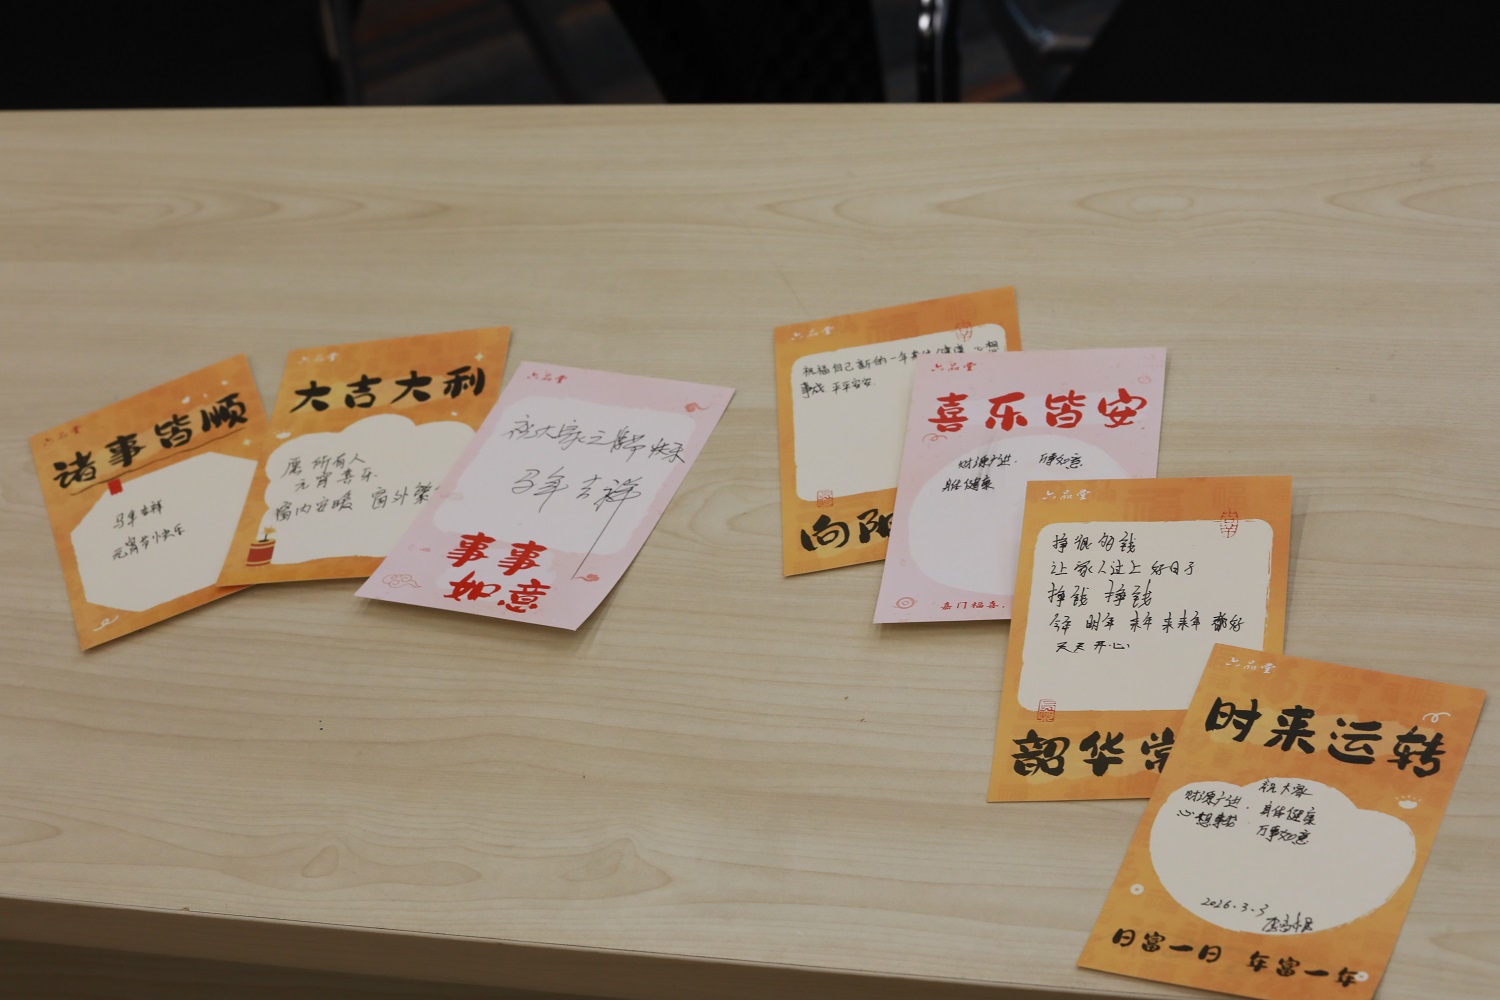 六品堂
诸事皆顺
马年吉祥
元宵节快乐
六品堂
大吉大利
愿所有人
元宵喜乐
窗内安暖 窗外繁
六品堂
祝大家元宵节快乐
马年吉祥
事事
如意
六品堂
祝福自己新的一年身体健康 心想
事成 平平安安
向阳
六品堂
喜乐皆安
财源广进. 万事如意
身体健康
嘉门福喜,
六品堂
挣很多钱
让家人过上好日子
挣钱 挣钱
今年 明年 来年 来来年 都好
天天开心
韶华常
六品堂
时来运转
祝大家
财源广进. 身体健康
心想事成 万事如意
2026.3.3
日富一日 年富一年